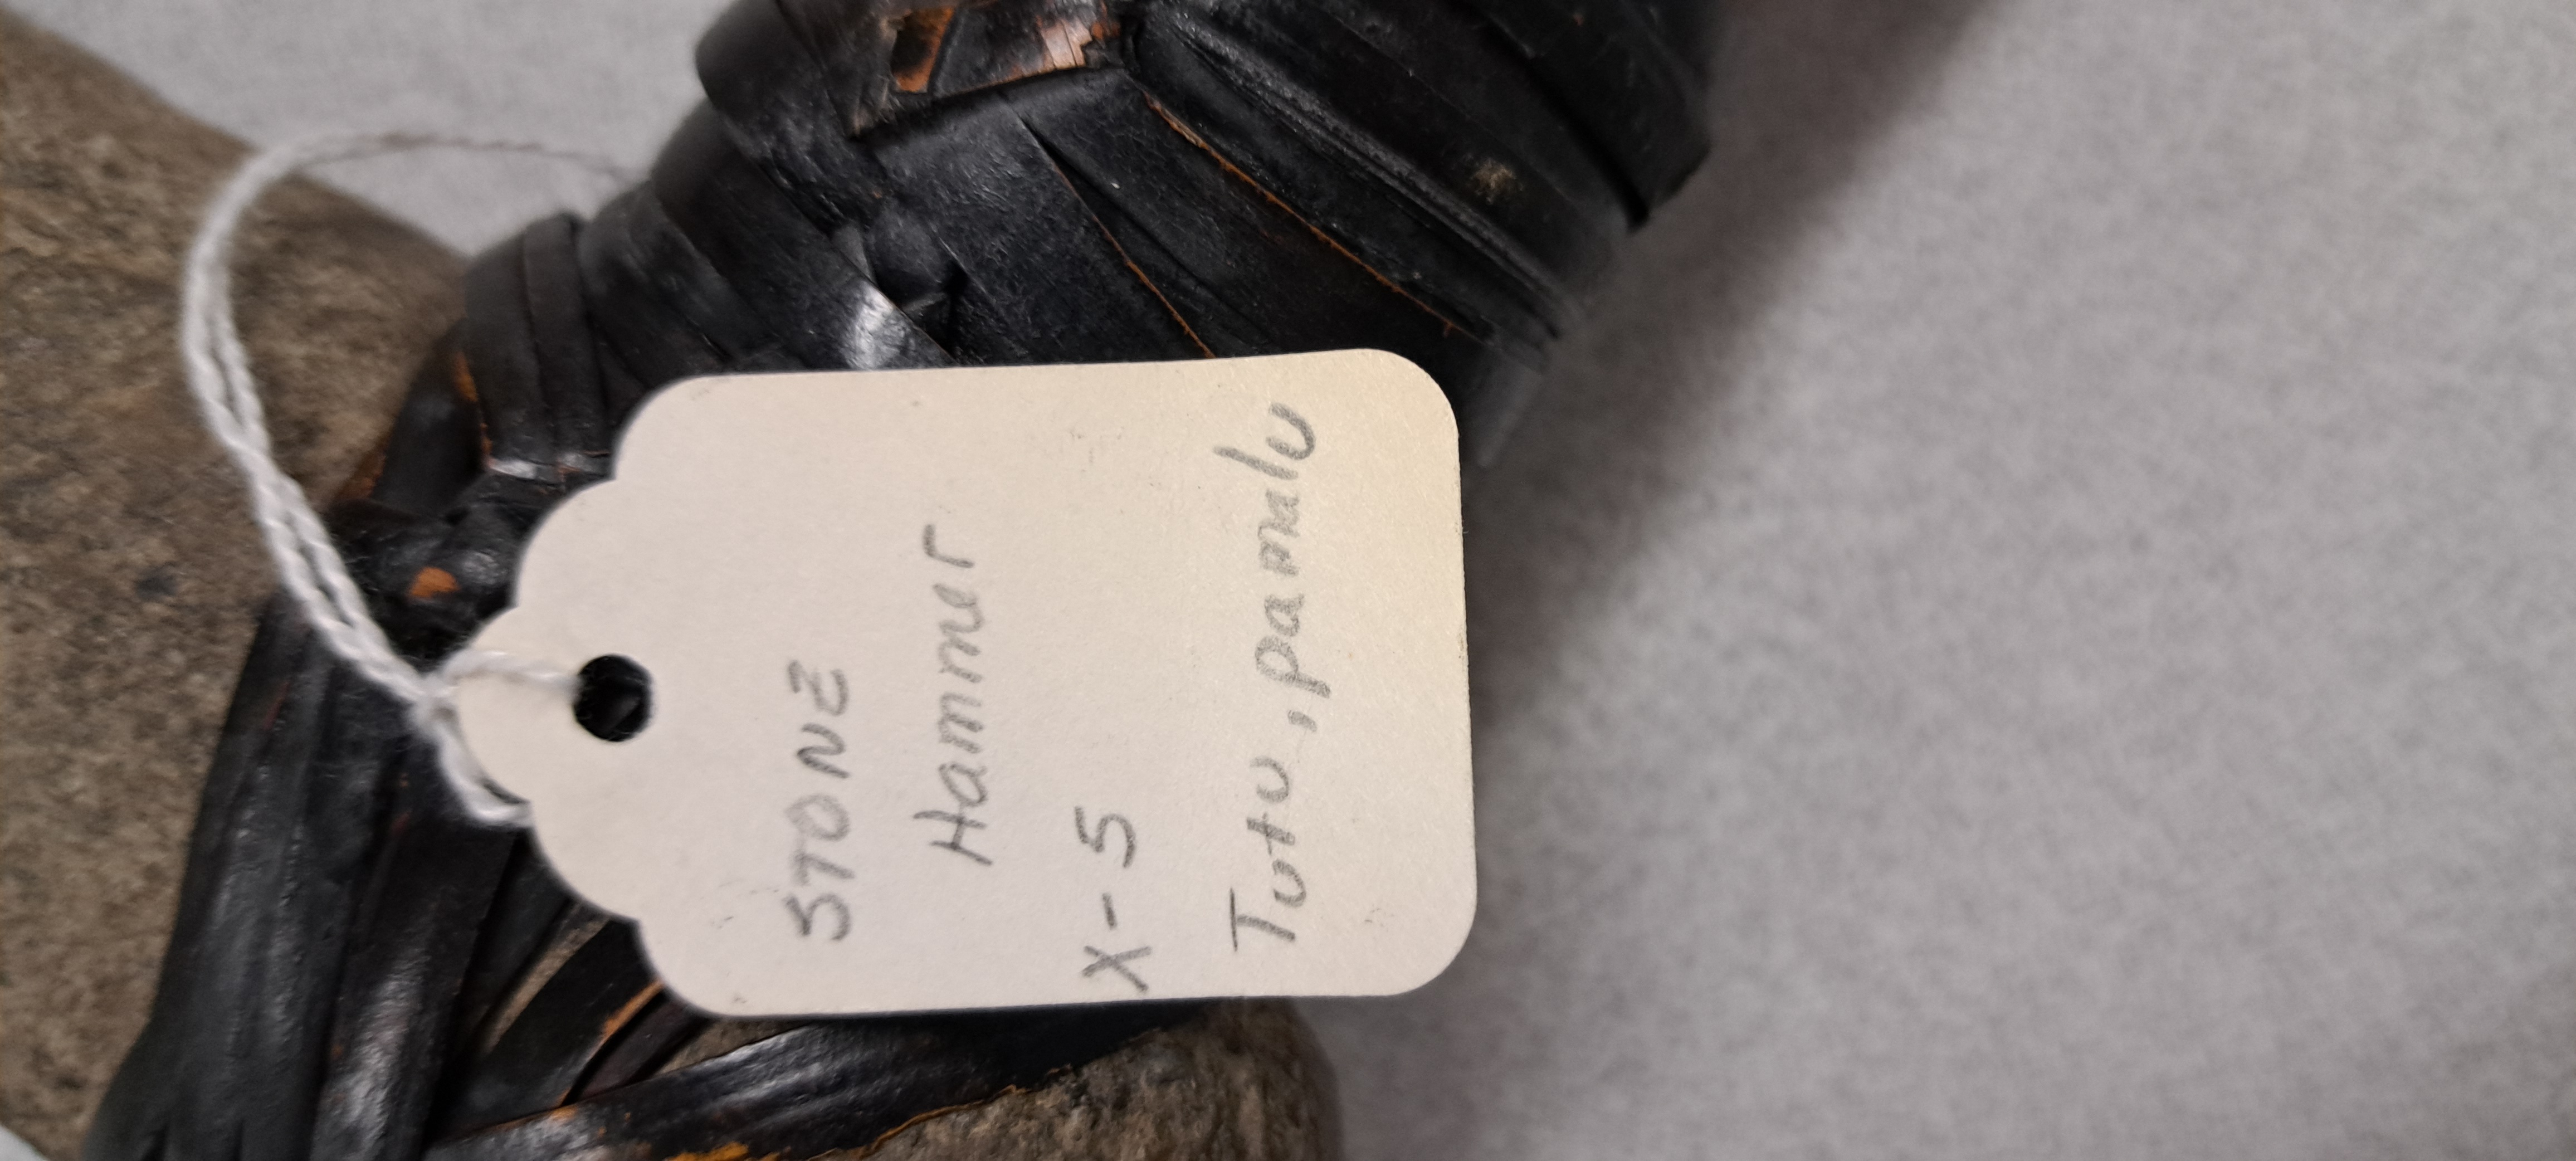 STONE
Hammer
X-5
Tutu, pamalu